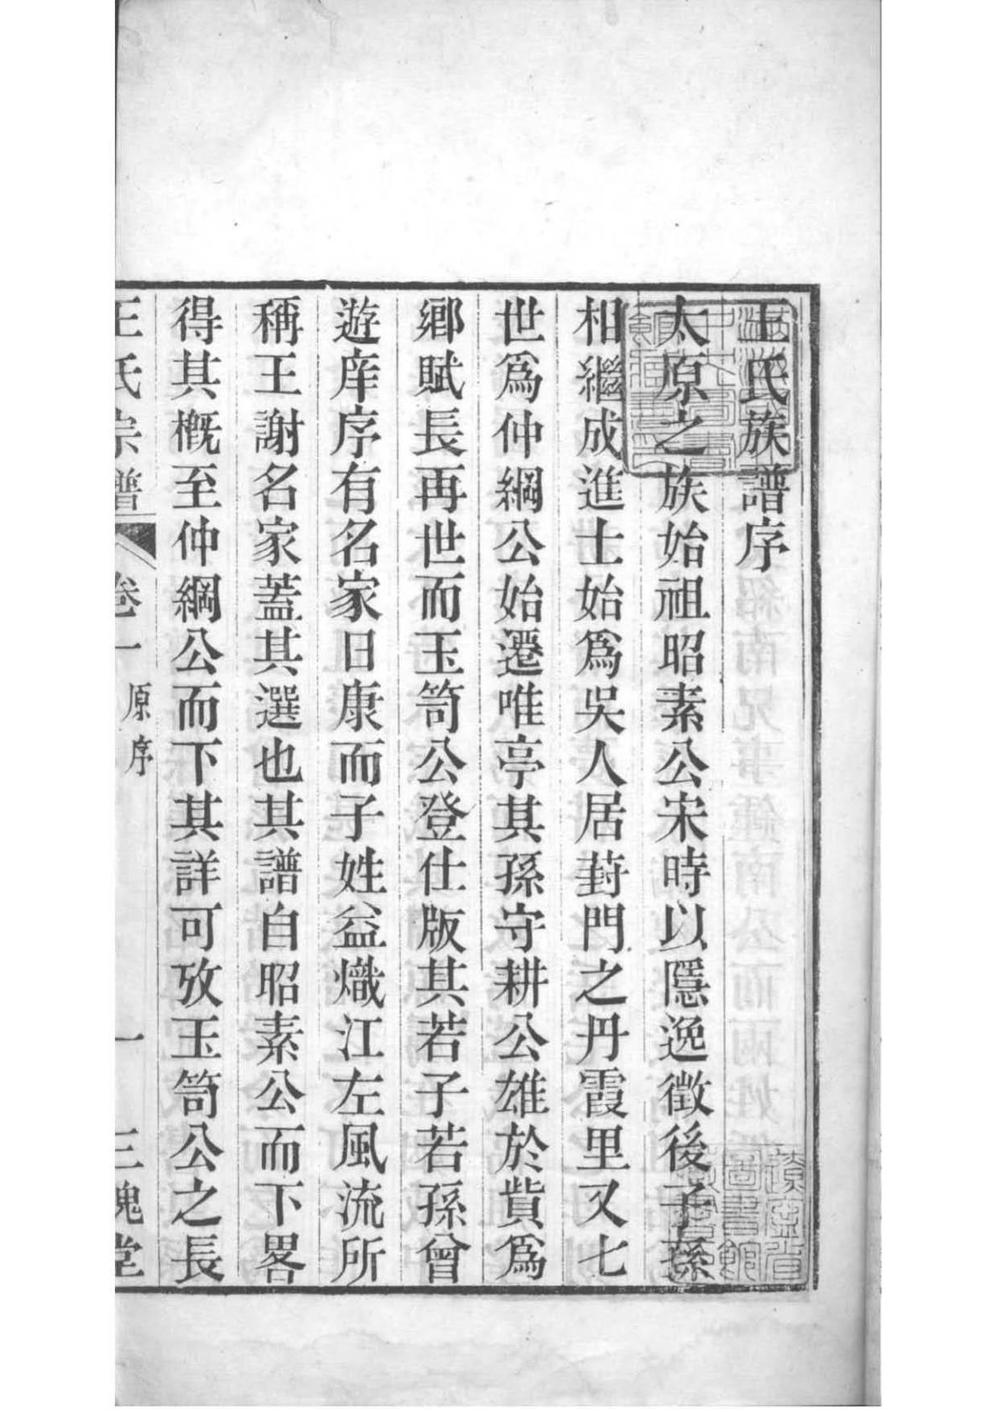 王氏族譜序
太原之族始祖昭素公宋時以隱逸徵後子孫
相繼成進士始爲吳人居葑門之丹霞里又七
世爲仲綱公始遷唯亭其孫守耕公雄於貲爲
鄉賦長再世而玉笥公登仕版其若子若孫曾
遊庠序有名家日康而子姓益熾江左風流所
稱王謝名家蓋其選也其譜自昭素公而下畧
得其槪至仲綱公而下其詳可攷玉笥公之長
王氏宗譜 卷一 原序 一 三槐堂